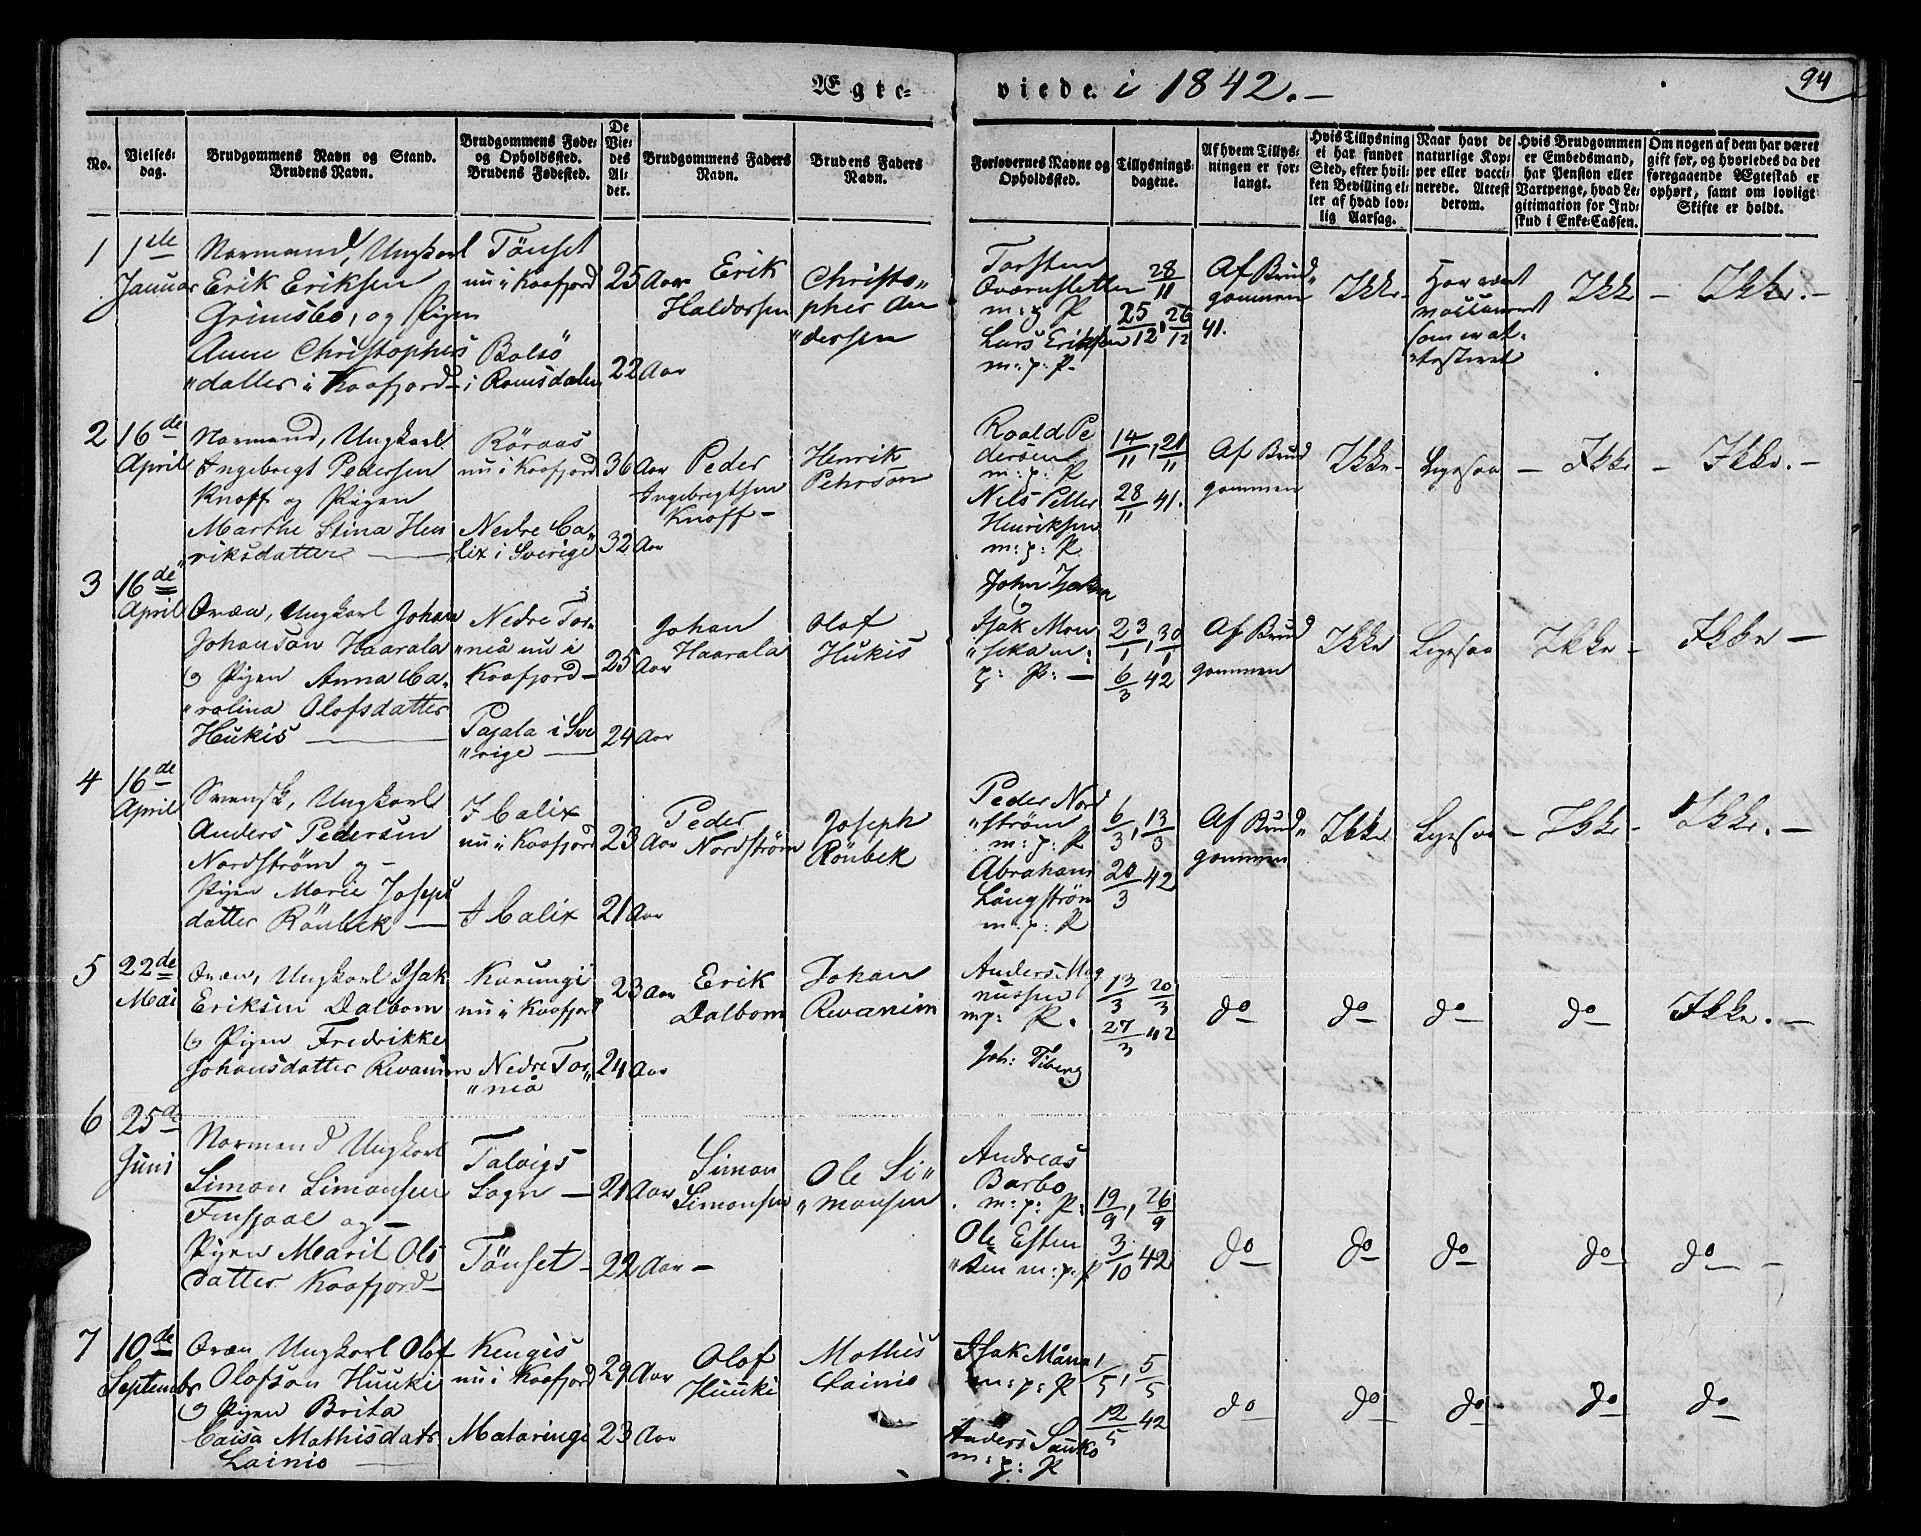 Ægte-
viede. i 1842.-
94
No.
Vielses-
dag.
Brudgommens Navn og Stand.
Brudens Navn.
Brudgommens Føde-
og Opholdssted.
Brudens Fødested.
De
Vie-
des
Al-
der.
Brudgommens Faders
Navn.
Brudens Faders
Navn.
Forlovernes Navne og
Opholdssted.
Tillysnings-
dagene.
Af hvem Tillys-
ningen er for-
langt.
Hvis Tillysning
ei har fundet
Sted, efter hvil-
ken Bevilling el-
ler af hvad lov-
lig Aarsag.
Naar havt de
naturlige Kop-
per eller vacci-
nerede. Attest
derom.
Hvis Brudgommen
er Embedsmand,
har Pension eller
Vartpenge, hvad Le-
gitimation for Ind-
skud i Enke-Cassen.
Om nogen af dem har været
gift før, og hvorledes da det
foregaaende Ægteskab er
ophørt, samt om lovligt
Skifte er holdt.
1
1ste
Januar
Normand, Ungkarl
Erik Eriksen
Grimsbo, og Pigen
Anne Christophers
"datter i Kaafjord-
Tönset
nu i Kaafjord
Bolsö
i Romsdalen
25 Aar
22 Aar
Erik
Haldorsen
Christo"
pher An
"dersen
Torsten
Qværnsletten
m: p P
Lars Eriksen
m: p: P-
28/11
25/12, 26/12 41.
Af Brud"
gommen
Ikke-
Har været
vaccineret
som er at-
"testeret
Ikke -
Ikke. -
2
16de
April
Normand, Ungkarl
Ingebregt Pedersen
Knoff og Pigen
Marthe Stina Hen
"riksdatter
Röraas
nu i Kaafjord
Nedre Ca"
lix i Sverige
36 Aar
32 Aar
Peder
Ingebregtsen
Knoff-
Henrik
Pehrson
Roald Pe
dersen
m: p: P
Nils Petter
Henriksen
m: p: P
14/11, 21/11
28/11 41.
Af Brud
gommen
Ikke-
Ligesaa -
Ikke -
Ikke. -
3
16de
April
Qvæn, Ungkarl Johan
Johanson Haarala
og Pigen Anna Ca-
"rolina Olofsdatter
Hukis
Nedre Tor-
"neå nu i
Kaafjord-
Pajala i Sve
"rige
25 Aar
24 Aar
Johan
Haarala
Olof
Hukis
Isak Mon
"
p: P: -
23/1, 30/1
6/3 42
Af Brud
gommen
Ikke
Ligesaa
Ikke -
Ikke -
4
16de
April
Svensk, Ungkarl
Anders Pedersen
Nordström og -
Pigen Marie Joseps
datter Rönbek -
I Calix
nu i Kaafjord
I Calix
23 Aar
21 Aar
Peder
Nordström
Joseph
Rönbek
Peder Nord
"ström
m: p: P
Abraham
Långström
m: p: P
6/3, 13/3
20/3 42
Af Brud"
gommen
Ikke
Ligesaa -
Ikke -
Ikke. -
5
22de
Mai
Qvæn, Ungkarl Isak
Eriksen Dalbom
og Pigen Fredrikke
Johansdatter Revanien
Karungi
nu i Kaafjord
Nedre Tor"
"neå
23 Aar
24 Aar
Erik
Dalbom
Johan
Revanien
Anders Mag
nussen
mp: P.
Joh: Fiberg
13/3 20/3
27/3 42
do
do
do
do
Ikke. -
6
25de
Juni
Normand Ungkarl
Simon Simonsen
og -
Pigen Marit Ols
datter Kaafjord-
Talvigs
Sogn -
Tönset -
21 Aar
22 Aar -
Simon
Simonsen
Ole Si"
"monsen
Andreas
Barbo
m: p: P:
Ole Esten
"sen m: p: P
19/9, 26/9
3/10 42
do
do
do
do
do -
7
10de
Septembr
Qvæn Ungkarl Olof
Olofson Huuki
og Pigen Brita
Caisa Mathisdatr
Lainio
Kengis
nu i Kaafjord
Mataringi
29 Aar
23 Aar
Olof
Huuki
Mathis
Lainio
Isak Måna
m: p: P
Anders Sauko
m: p: P
1/5, 5/5
12/5 42
do
do
do
do
do